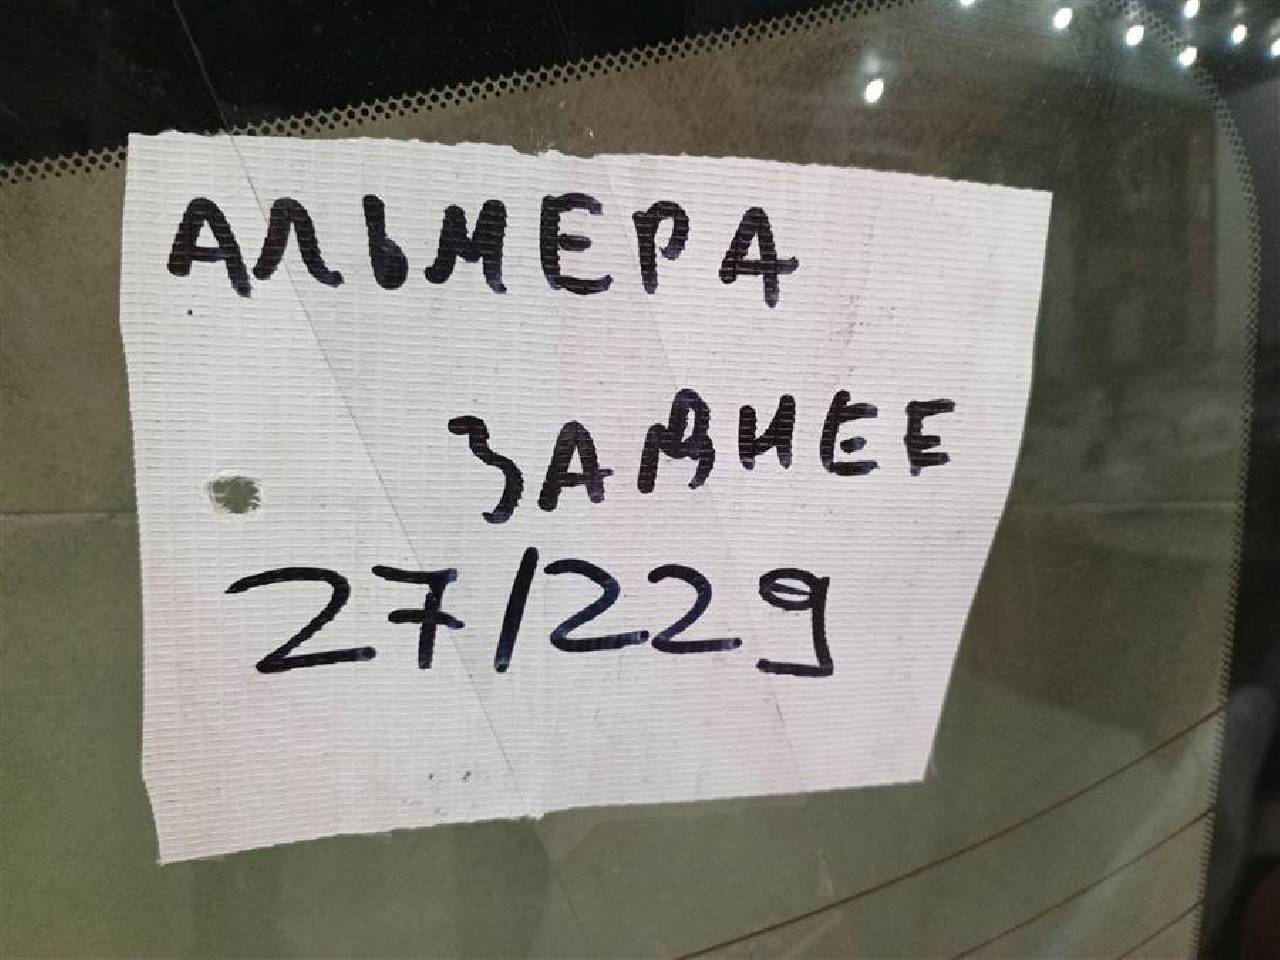 АЛЬМЕРА
ЗАДНЕЕ
27/229